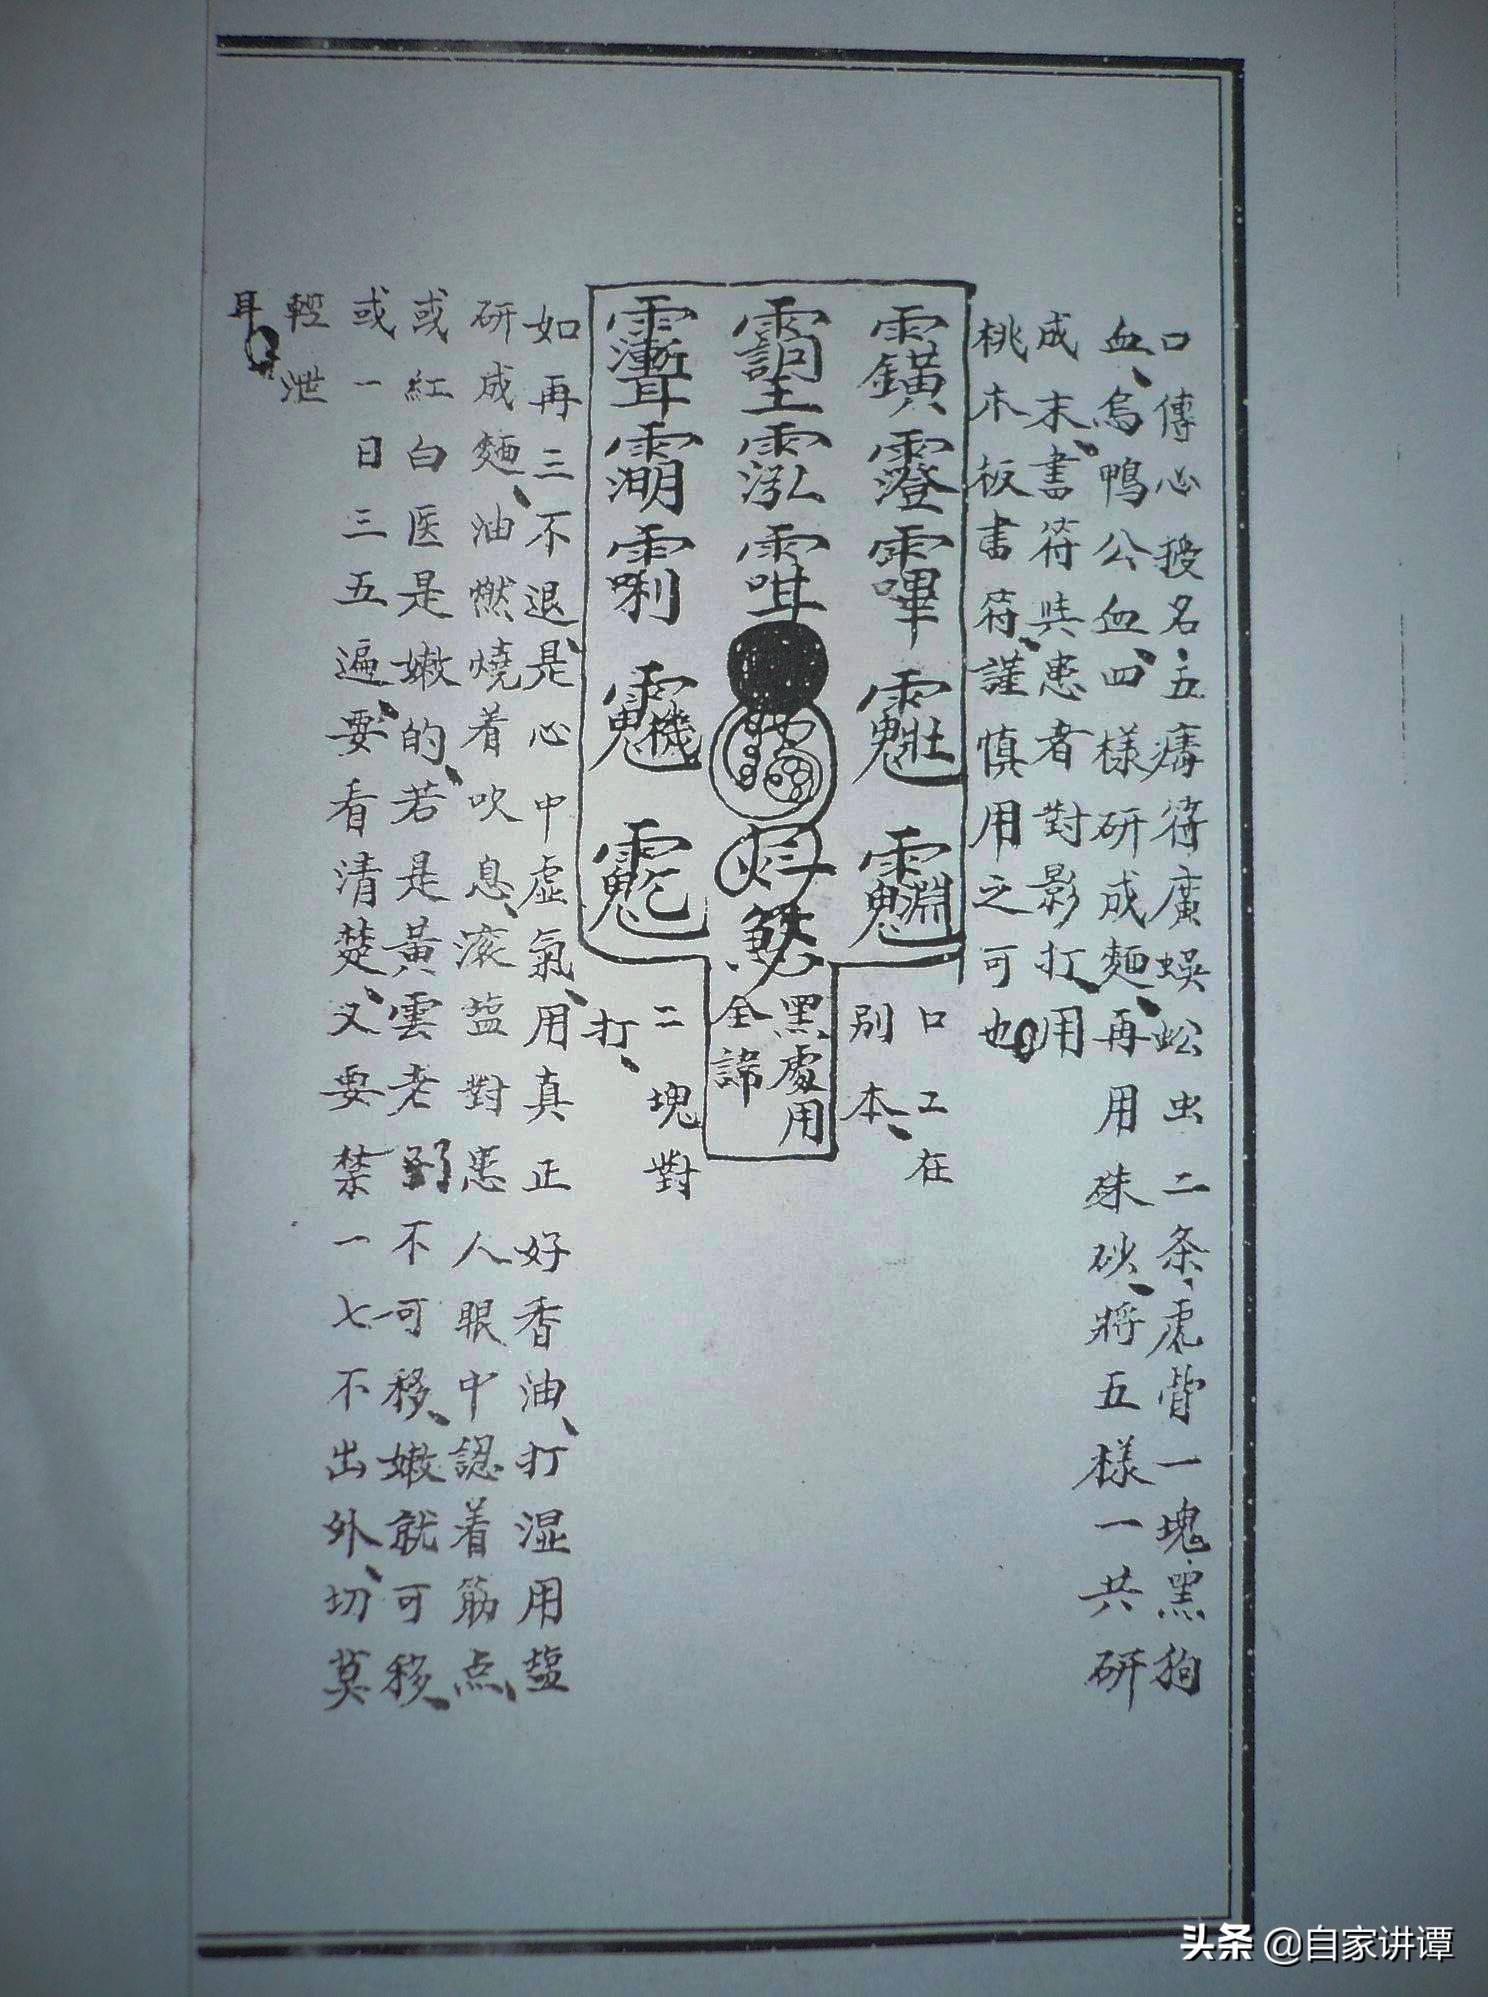 口傳心授名五瘴符廣蜈蚣虫二条虎骨一塊黑狗
血、烏鴨公血、四樣研成麵、再用硃砂、將五樣一共研
成末、書符與患者對影打、用
桃木板書符、謹慎用之可也
口工在
別本、
黑處用
全諱
二塊對
打、
如再三不退、是心中虛氣、用真正好香油、打湿用塩
研成麵、油燃燒着吹息、滚塩對患人眼中認着筋点、
或紅白医是嫩的、若是黃雲老不可移、嫩就可移、
或一日三五遍、要看清楚、又要禁一七不出外、切莫
輕泄
耳
头条 @自家讲谭